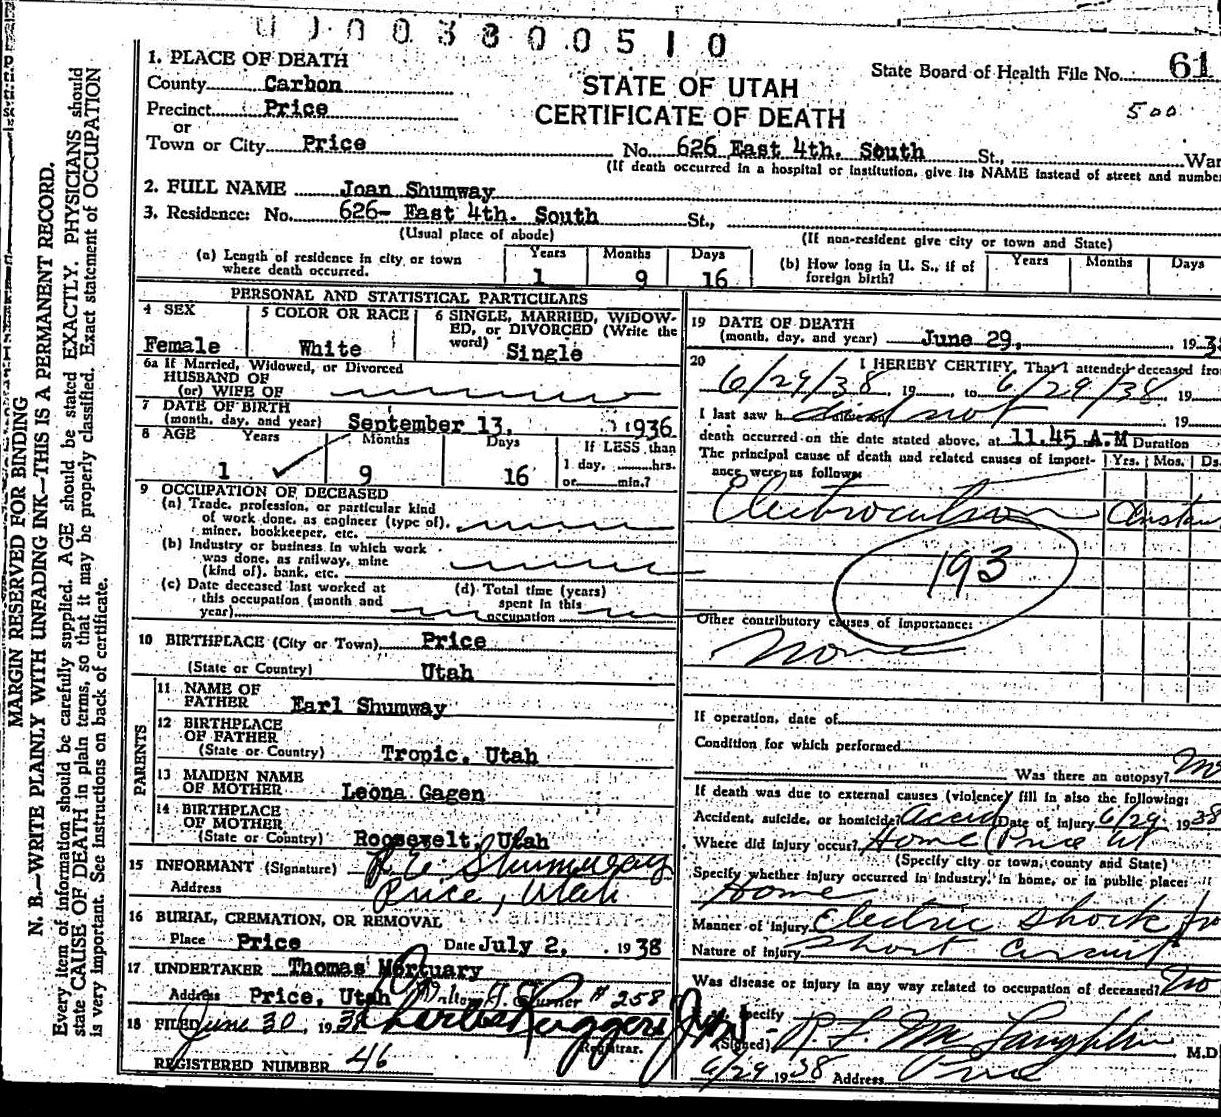 0 0 0 3 8 0 0 5 1 0
1. PLACE OF DEATH
County Carbon
Precinct Price
or
Town or City Price
STATE OF UTAH
CERTIFICATE OF DEATH
State Board of Health File No. 61
500
No. 626 East 4th. South St., War
(If death occurred in a hospital or institution, give its NAME instead of street and number
2. FULL NAME Joan Shumway
3. Residence: No. 626- East 4th. South St.,
(Usual place of abode)
(If non-resident give city or town and State)
(a) Length of residence in city or town where death occurred. Years 1 Months 9 Days 16
(b) How long in U. S., if of foreign birth? Years Months Days
PERSONAL AND STATISTICAL PARTICULARS
4 SEX Female
5 COLOR OR RACE White
6 SINGLE, MARRIED, WIDOWED, or DIVORCED (Write the word) Single
6a If Married, Widowed, or Divorced
HUSBAND OF
(or) WIFE OF
7 DATE OF BIRTH
(month, day, and year) September 13, 1936
8 AGE Years 1 Months 9 Days 16 If LESS than 1 day, hrs. or min.?
9 OCCUPATION OF DECEASED
(a) Trade, profession, or particular kind
of work done, as engineer (type of),
miner, bookkeeper, etc.
(b) Industry or business in which work
was done, as railway, mine
(kind of), bank, etc.
(c) Date deceased last worked at
this occupation (month and
year)
(d) Total time (years)
spent in this
occupation
10 BIRTHPLACE (City or Town) Price
(State or Country) Utah
PARENTS
11 NAME OF
FATHER Earl Shumway
12 BIRTHPLACE
OF FATHER
(State or Country) Tropic, Utah
13 MAIDEN NAME
OF MOTHER Leona Gagen
14 BIRTHPLACE
OF MOTHER
(State or Country) Roosevelt, Utah
15 INFORMANT (Signature) Shumway
Address Price, Utah
16 BURIAL, CREMATION, OR REMOVAL
Place Price Date July 2, 1938
17 UNDERTAKER Thomas Mortuary
Address Price, Utah # 258
18 FILED June 30, 1938
Registrar.
REGISTERED NUMBER 46
19 DATE OF DEATH
(month, day, and year) June 29, 193
20 I HEREBY CERTIFY, That I attended deceased fro
6/29/38 19 to 6/29/38 19
I last saw h did not 19
death occurred on the date stated above, at 11.45 A.M Duration
The principal cause of death and related causes of import- Yrs. Mos. Ds.
ance were as follows:
Electrocution Instan
193
Other contributory causes of importance:
None
If operation, date of
Condition for which performed
Was there an autopsy? No
If death was due to external causes (violence) fill in also the following:
Accident, suicide, or homicide? Accid Date of injury 6/29 1938
Where did injury occur? Home Price Ut
(Specify city or town, county and State)
Specify whether injury occurred in industry, in home, or in public place:
Home
Manner of injury Electric shock fro
Nature of injury Short Circuit
Was disease or injury in any way related to occupation of deceased? No
specify
(Signed) R. F. McLaughlin M.D
6/29 1938 Address Price
MARGIN RESERVED FOR BINDING
N. B.—WRITE PLAINLY WITH UNFADING INK—THIS IS A PERMANENT RECORD.
Every item of information should be carefully supplied. AGE should be stated EXACTLY. PHYSICIANS should
state CAUSE OF DEATH in plain terms, so that it may be properly classified. Exact statement of OCCUPATION
is very important. See instructions on back of certificate.